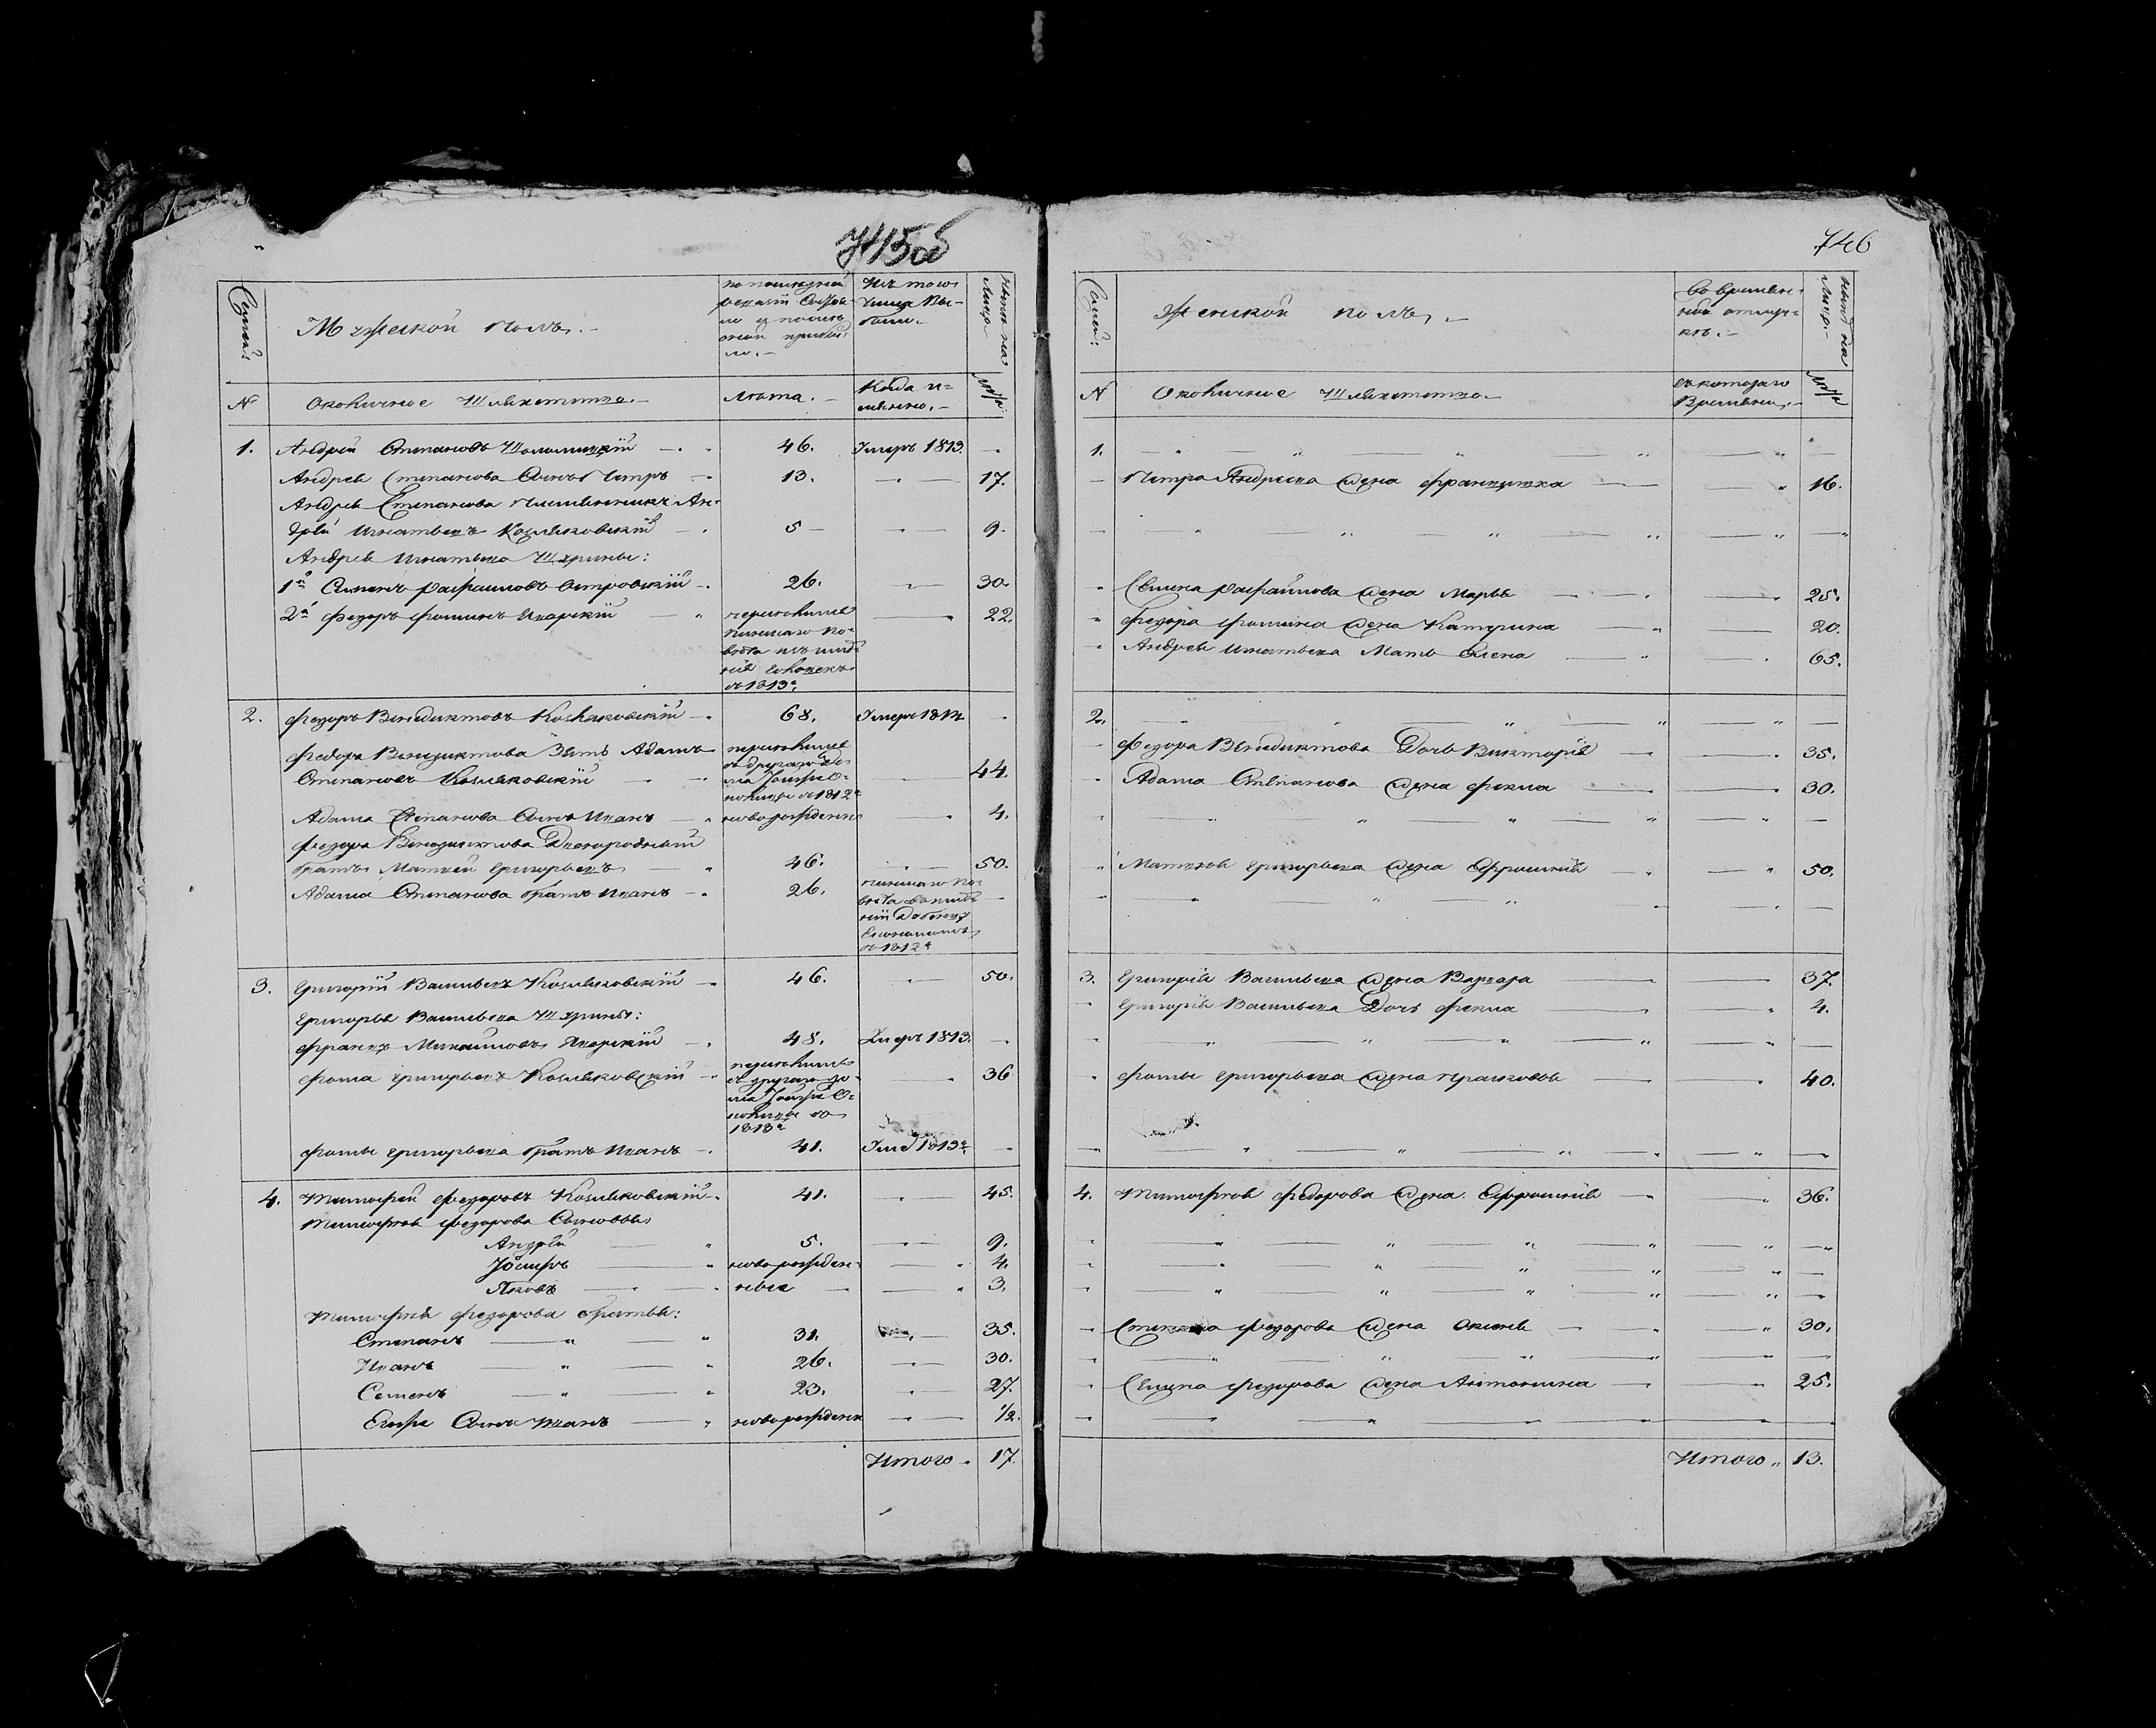 745об
Семей:
Мужеской полъ.
по последней
ревизіи состоя-
ло и после
оной прибы-
ло.
Изъ того
числа вы-
было.
Ныне на
лицо.
N
Околичное Шляхетство.
Лета.
Когда и-
менно.
1. Андрей Степановъ 46. Умеръ 1813.
Андрея Степанова Сынъ Петръ 13. 17.
Андрея Степанова Племянникъ Ан-
дрей Игнатьевъ Козляковскій 5 9.
Андрея Игнатьева Шурины:
1й Семенъ Рафаиловъ Островскій 26. 30.
2й Федоръ Фоминъ 22.
1813
2. Федоръ Венедиктовъ Козляковскій 68. Умеръ 181
Федора Венедиктова Зять Адамъ
Степановъ Козляковскій 44.
с 1812
Адама Степанова Сынъ Иванъ новорожденъ 4.
Федора Венедиктова Двоюродный
братъ Матвей Григорьевъ 46. 50.
Адама Степанова братъ Иванъ 26.
1812
3. Григорій Васильевъ Козляковскій 46. 50.
Григорья Васильева Шурины:
Францъ Михайловъ 48. Умеръ 1813.
Фома Григорьевъ Козляковскій 36
Фомы Григорьева братъ Иванъ 41. Умер 1813
4. Тимофей Федоровъ Козляковскій 41. 45.
Тимофея Федорова Сыновья
Андрей 5. 9.
Іосифъ новорожден- 4.
Яковъ ные 3.
Тимофея Федорова братья:
Степанъ 31. 35.
Иванъ 26. 30.
Семенъ 23. 27.
Сынъ Иванъ новорожденъ 1/2.
Итого 17.
746
Семей:
Женской полъ.
Во времен-
ной отлуч-
ке.
Ныне на
лицо.
N
Околичное Шляхетство.
съ котораго
времени.
1.
Петра Андреева жена Францишка 16.
Семена Рафаилова жена Марья 25.
Федора Фомина жена Катерина 20.
Андрея Игнатьева Мать Елена 65.
2.
Федора Венедиктова Дочь Викторія 35.
Адама Степанова жена Фекла 30.
Матвея Григорьева жена Ефросинія 50.
3. Григорія Васильева жена Варвара 37.
Григорія Васильева Дочь Фекла 4.
Фомы Григорьева жена Прасковья 40.
4. Тимофея Федорова жена Ефросинія 36.
Степана Федорова жена Оксенья 30.
Семена Федорова жена Антонина 25.
Итого 13.